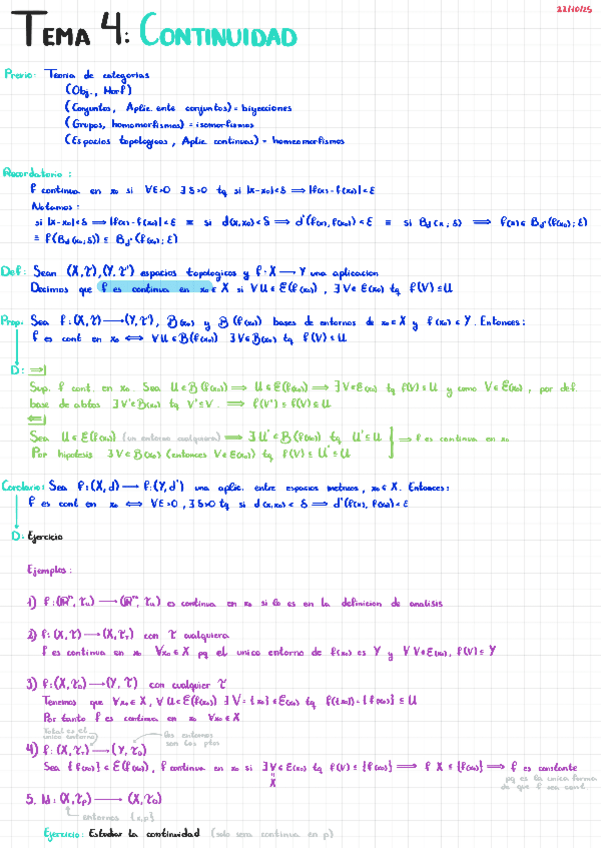 22/10/25
TEMA 4: CONTINUIDAD
Previo: Teoria de categorias
(Obj., Morf)
(Conjuntos, Aplic. entre conjuntos) = biyecciones
(Grupos, homomorfismos) = isomorfismos
(Espacios topologicos, Aplic continuas) = homeomorfismos
Recordatorio:
f continua en x₀ si ∀ε>0 ∃δ>0 tq si |x-x₀|<δ ⟹ |f(x)-f(x₀)|<ε
Notamos:
si |x-x₀|<δ ⟹ |f(x)-f(x₀)|<ε ≡ si d(x,x₀)<δ ⟹ d'(f(x),f(x₀))<ε ≡ si B_d(x,δ) ⟹ f(x)∈B_d'(f(x₀);ε)
≡ f(B_d(x₀;δ)) ⊆ B_d'(f(x₀);ε)
Def: Sean (X,τ),(Y,τ') espacios topologicos y f:X⟶Y una aplicacion
Decimos que f es continua en x₀∈X si ∀U∈ℰ(f(x₀)), ∃V∈ℰ(x₀) tq f(V)⊆U
Prop: Sea f:(X,τ)⟶(Y,τ'), B(x₀) y B(f(x₀)) bases de entornos de x₀∈X y f(x₀)∈Y. Entonces:
f es cont en x₀ ⟺ ∀U∈B(f(x₀)) ∃V∈B(x₀) tq f(V)⊆U
D: ⟹|
Sup. f cont. en x₀. Sea U∈B(f(x₀)) ⟹ U∈ℰ(f(x₀)) ⟹ ∃V∈ℰ(x₀) tq f(V)⊆U y como V∈ℰ(x₀), por def.
base de abtos ∃V'∈B(x₀) tq V'⊆V. ⟹ f(V')⊆f(V)⊆U
⟸|
Sea U∈ℰ(f(x₀)) (un entorno cualquiera) ⟹ ∃U'∈B(f(x₀)) tq U'⊆U
Por hipotesis ∃V∈B(x₀) (entonces V∈ℰ(x₀)) tq f(V)⊆U'⊆U } ⟹ f es continua en x₀
Corolario: Sea f:(X,d)⟶f:(Y,d') una aplic. entre espacios metricos, x₀∈X. Entonces:
f es cont en x₀ ⟺ ∀ε>0, ∃δ>0 tq si d(x,x₀)<δ ⟹ d'(f(x),f(x₀))<ε
D: Ejercicio
Ejemplos:
1) f:(ℝⁿ,τᵤ)⟶(ℝᵐ,τᵤ) es continua en x₀ si lo es en la definicion de analisis
2) f:(X,τ)⟶(X,τ_T) con τ cualquiera
f es continua en x₀ ∀x₀∈X pq el unico entorno de f(x₀) es Y y ∀V∈ℰ(x₀), f(V)⊆Y
3) f:(X,τ_D)⟶(Y,τ) con cualquier τ
Tenemos que ∀x₀∈X, ∀U∈ℰ(f(x₀)) ∃V={x₀}∈ℰ(x₀) tq f({x₀})={f(x₀)}⊆U
Por tanto f es continua en x₀ ∀x₀∈X
Total es el
unico entorno
los entornos
son los ptos
4) f:(X,τ_T)⟶(Y,τ_D)
Sea {f(x₀)}∈ℰ(f(x₀)), f continua en x₀ si ∃V∈ℰ(x₀) tq f(V)⊆{f(x₀)} ⟹ f X⊆{f(x₀)} ⟹ f es constante
X
pq es la unica forma
de que f sea cont.
5. Id:(X,τ_p)⟶(X,τ_D)
entornos {x,p}
Ejercicio: Estudiar la continuidad (solo sera continua en p)